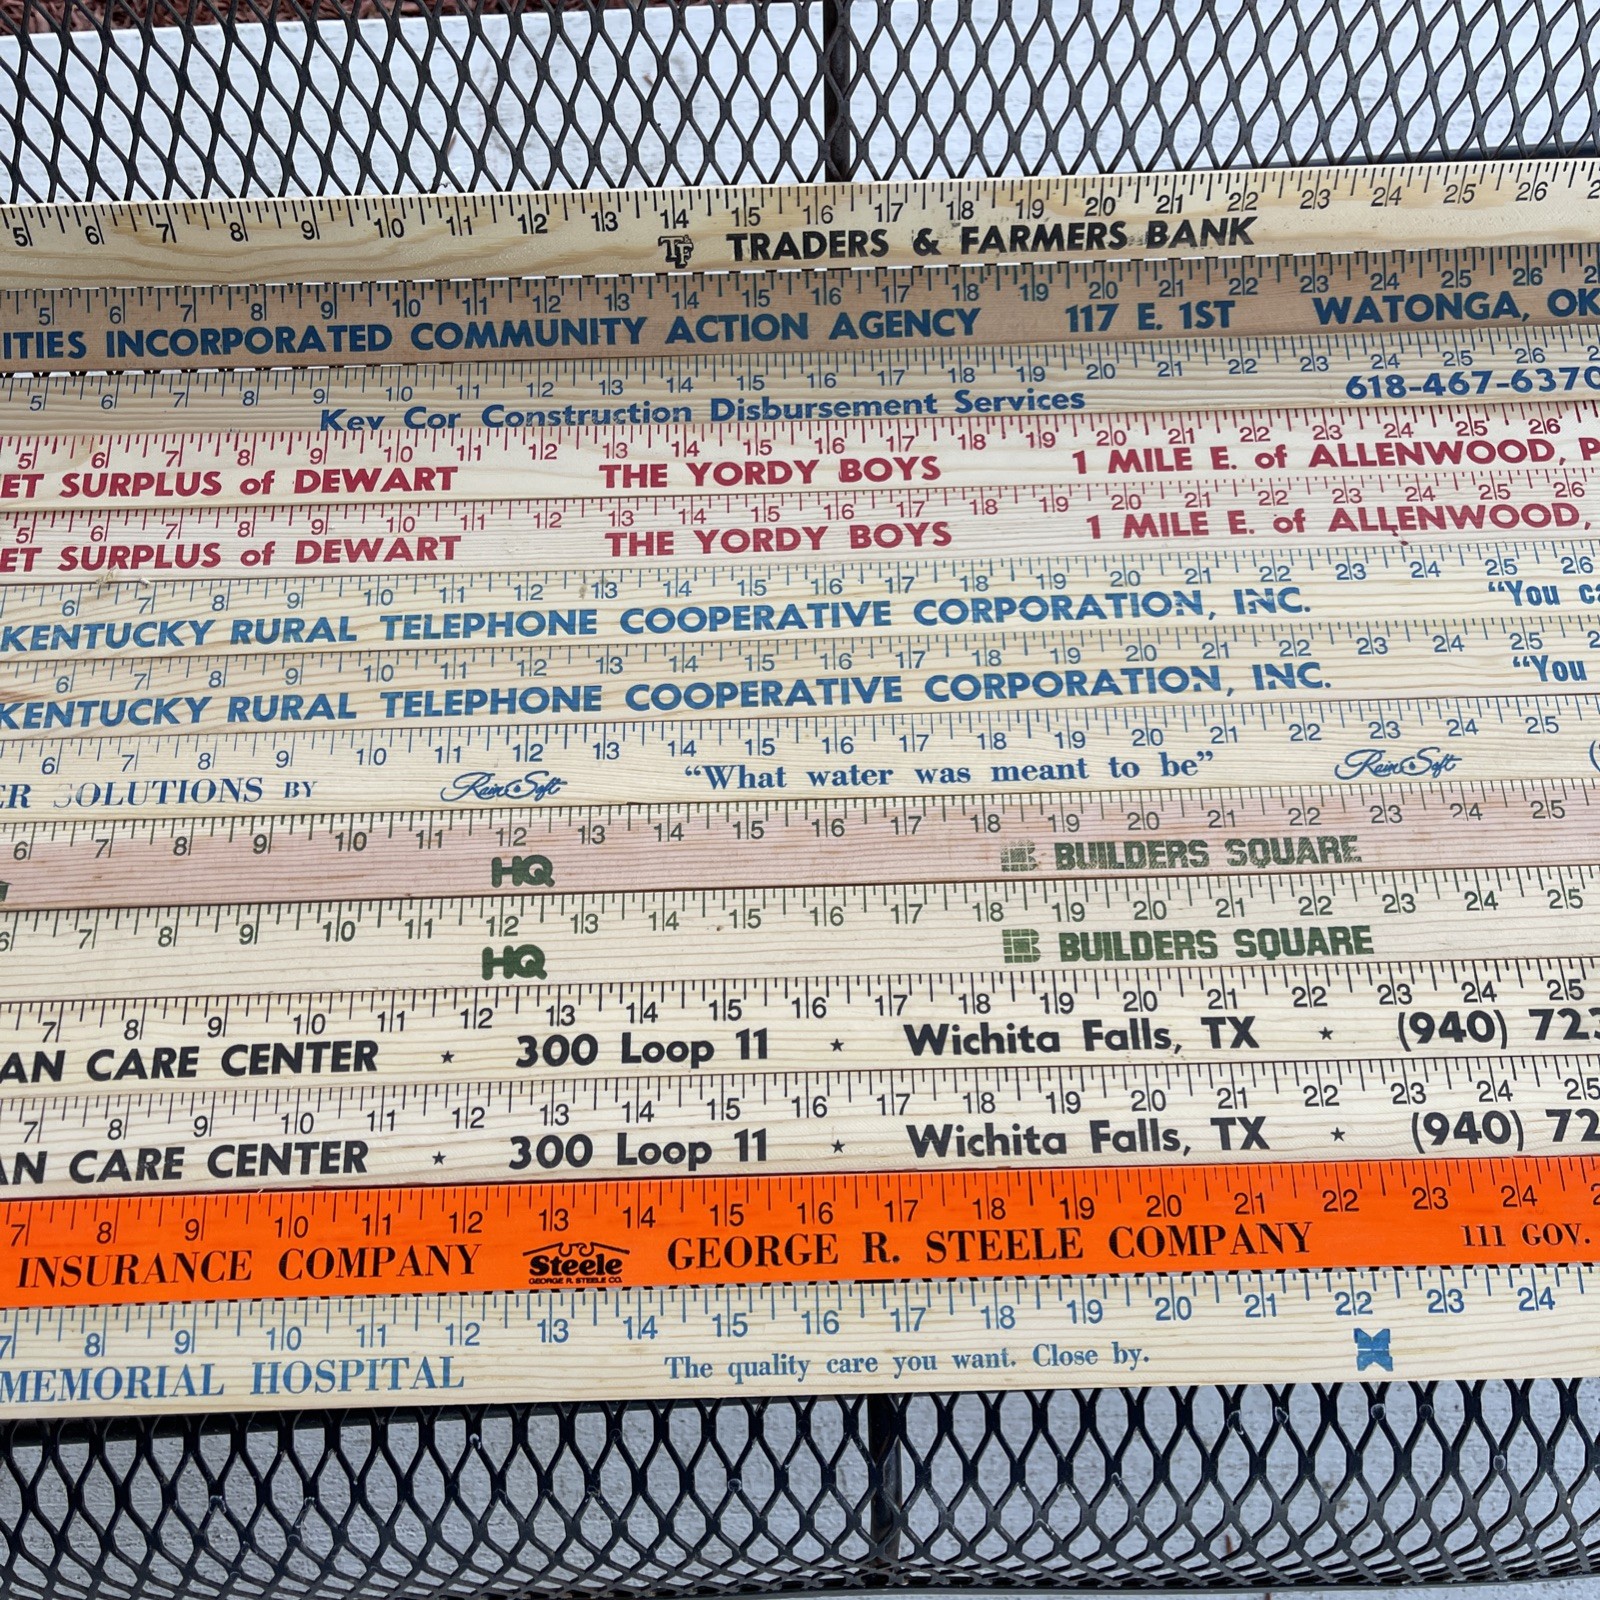 5 6 7 8 9 10 11 12 13 14 15 16 17 18 19 20 21 22 23 24 25 26 2
TF TRADERS & FARMERS BANK
5 6 7 8 9 10 11 12 13 14 15 16 17 18 19 20 21 22 23 24 25 26 2
ITIES INCORPORATED COMMUNITY ACTION AGENCY 117 E. 1ST WATONGA, OK
5 6 7 8 9 10 11 12 13 14 15 16 17 18 19 20 21 22 23 24 25 26 2
Key Cor Construction Disbursement Services 618-467-6370
5 6 7 8 9 10 11 12 13 14 15 16 17 18 19 20 21 22 23 24 25 26
ET SURPLUS of DEWART THE YORDY BOYS 1 MILE E. of ALLENWOOD, P
5 6 7 8 9 10 11 12 13 14 15 16 17 18 19 20 21 22 23 24 25 26
ET SURPLUS of DEWART THE YORDY BOYS 1 MILE E. of ALLENWOOD,
6 7 8 9 10 11 12 13 14 15 16 17 18 19 20 21 22 23 24 25 26
KENTUCKY RURAL TELEPHONE COOPERATIVE CORPORATION, INC. "You ca
6 7 8 9 10 11 12 13 14 15 16 17 18 19 20 21 22 23 24 25 2
KENTUCKY RURAL TELEPHONE COOPERATIVE CORPORATION, INC. "You
6 7 8 9 10 11 12 13 14 15 16 17 18 19 20 21 22 23 24 25
ER SOLUTIONS BY RainSoft "What water was meant to be" RainSoft (
6 7 8 9 10 11 12 13 14 15 16 17 18 19 20 21 22 23 24 25
HQ BUILDERS SQUARE
6 7 8 9 10 11 12 13 14 15 16 17 18 19 20 21 22 23 24 25
HQ BUILDERS SQUARE
7 8 9 10 11 12 13 14 15 16 17 18 19 20 21 22 23 24 25
AN CARE CENTER ★ 300 Loop 11 ★ Wichita Falls, TX ★ (940) 723
7 8 9 10 11 12 13 14 15 16 17 18 19 20 21 22 23 24 25
AN CARE CENTER ★ 300 Loop 11 ★ Wichita Falls, TX ★ (940) 72
7 8 9 10 11 12 13 14 15 16 17 18 19 20 21 22 23 24 2
INSURANCE COMPANY Steele GEORGE R. STEELE COMPANY 111 GOV.
GEORGE R. STEELE CO.
7 8 9 10 11 12 13 14 15 16 17 18 19 20 21 22 23 24
MEMORIAL HOSPITAL The quality care you want. Close by.